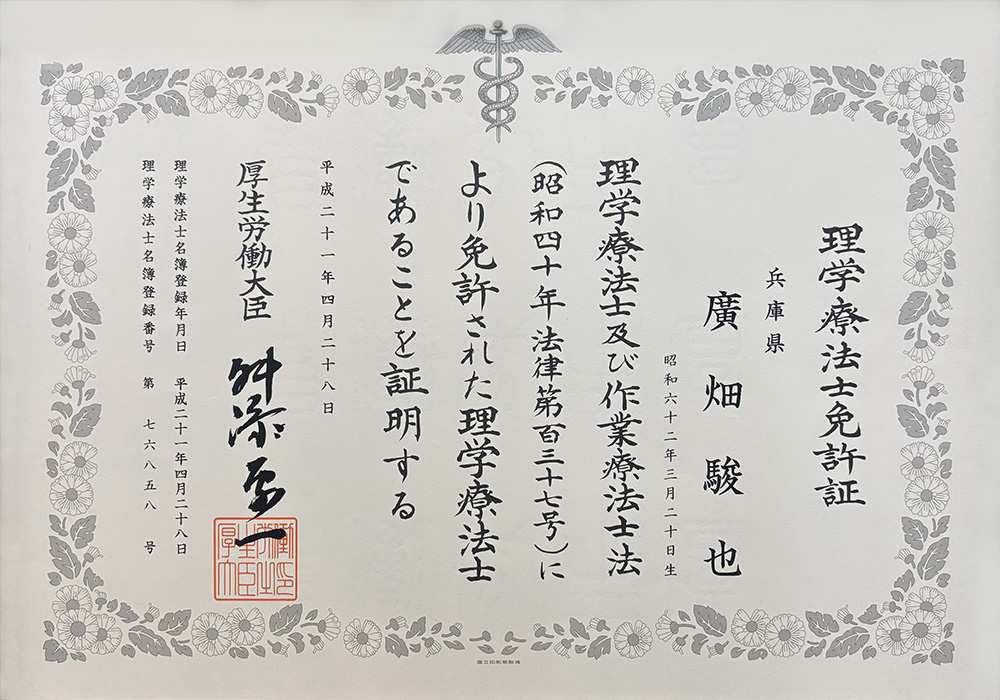 理学療法士免許証
兵庫県
廣畑駿也
昭和六十二年三月二十日生
理学療法士及び作業療法士法
(昭和四十年法律第百三十七号)に
より免許された理学療法士
であることを証明する
平成二十一年四月二十八日
厚生労働大臣 舛添要一
理学療法士名簿登録年月日 平成二十一年四月二十八日
理学療法士名簿登録番号 第 七六八五八 号